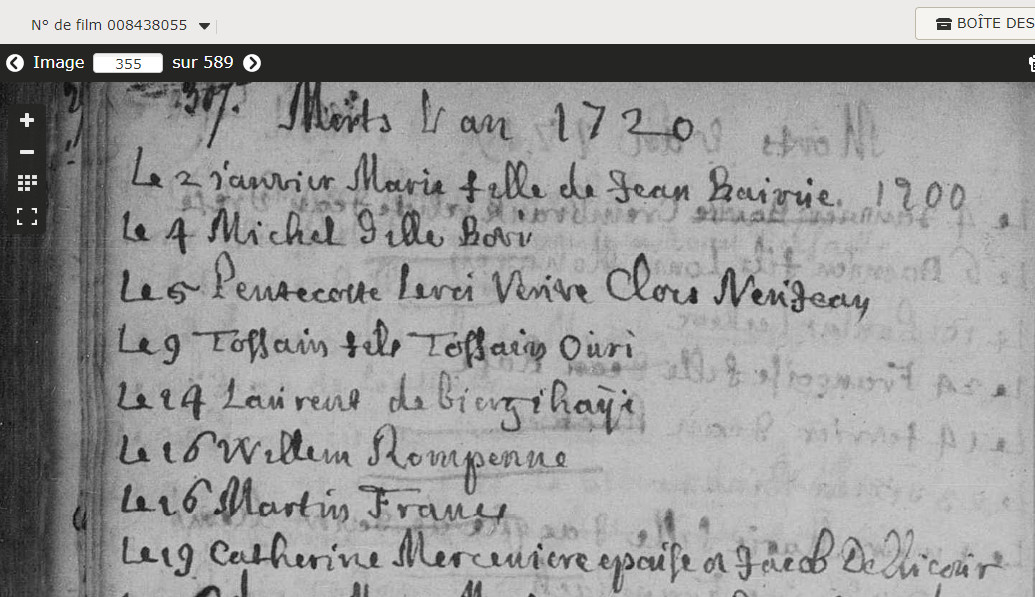 N° de film 008438055
BOÎTE DES
Image 355 sur 589
307. Morts L an 1720
Le 2 janvier Marie fille de Jean Bairive. 1900
Le 4 Michel Gille Bovi
Le 5 Pentecoste Lerci Veuve Clos Neujean
Le 9 Tossain fils Tossain Ouri
Le 14 Laurent de biergihaÿi
Le 16 Willem Rompenne
Le 16 Martin
Le 19 Catherine Merceniere epouse a Jacob Dellicour